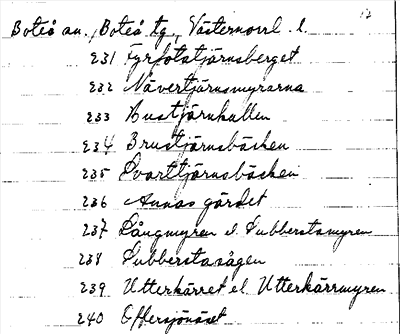 12
Boteå sn., Boteå tg., Västernorrl. l.
231 Fyrfotatjärnsberget
232 Nävertjärnsmyrarna
233 Bustjärnkullen
234 Brustjärnsbäcken
235 Svarttjärnsbäcken
236 Annas gärdet
237 Långmyren el. Subberstamyren
238 Subberstasågen
239 Utterkärret el. Utterkärrmyren
240 Offersjönäset